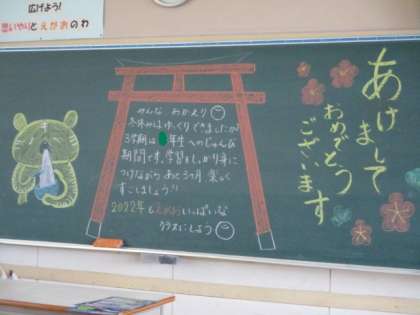 広げよう!
思いやりとえがおのわ
みんな おかえり
冬休みはゆっくりできましたか?
3学期は 年生へのじゅんび
期間です。学習をしっかり身に
つけながら あと3ヶ月 楽しく
すごしましょう!!
2022年もえがおいっぱいな
クラスにしよう
あけまして
おめでとう
ございます